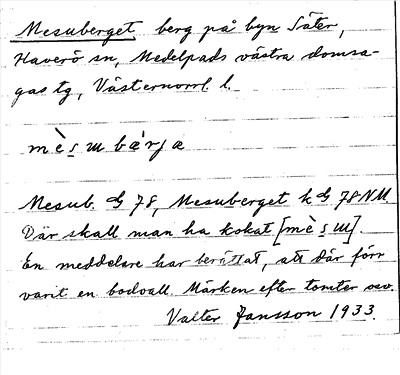 Mesuberget, berg på byn Säter,
Haverö sn, Medelpads västra domsa-
gas tg, Västernorrl. l.
mè s ɯ bæ̀rj a
Mesub. G 78, Mesuberget k G 78 NM.
Där skall man ha kokat [mè s ɯ].
En meddelare har berättat, att där förr
varit en bodvall. Märken efter tomter osv.
Valter Jansson 1933.